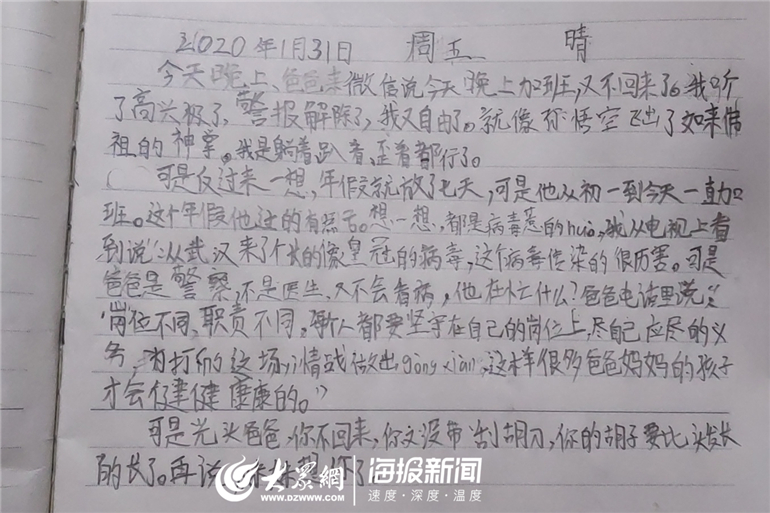 2020年1月31日 周五 晴
今天晚上、爸爸来微信说今天晚上加班,又不回来了。我
了高兴极了,警报解除了,我又自由了。就像孙悟空飞出了如来佛
祖的神掌。我是躺着趴着、歪着都行了。
可是反过来一想,年假文就放了七天,可是他从初一到今天一直加
班。这个年假他过的有点苦。想一想,都是病毒惹的huò,我从电视上看
到说:从武汉来了个长的像皇冠的病毒,这个病毒传染的很厉害。可是
爸爸是警察,不是医生,又不会看病,他在忙什么?爸爸电话里说:“
岗位不同、职责不同。每个人都要坚守在自己的岗位上,尽自己应尽的义
务,为打你的这场 情战做出gòng xiàn,这样很多爸爸妈妈的孩子
才会健健康康的。”
可是光头爸爸,你不回来,你又没带刮胡刀,你的胡子要比头发长
的长了。再说
大众网 海报新闻
WWW.DZWWW.COM 速度·深度·温度